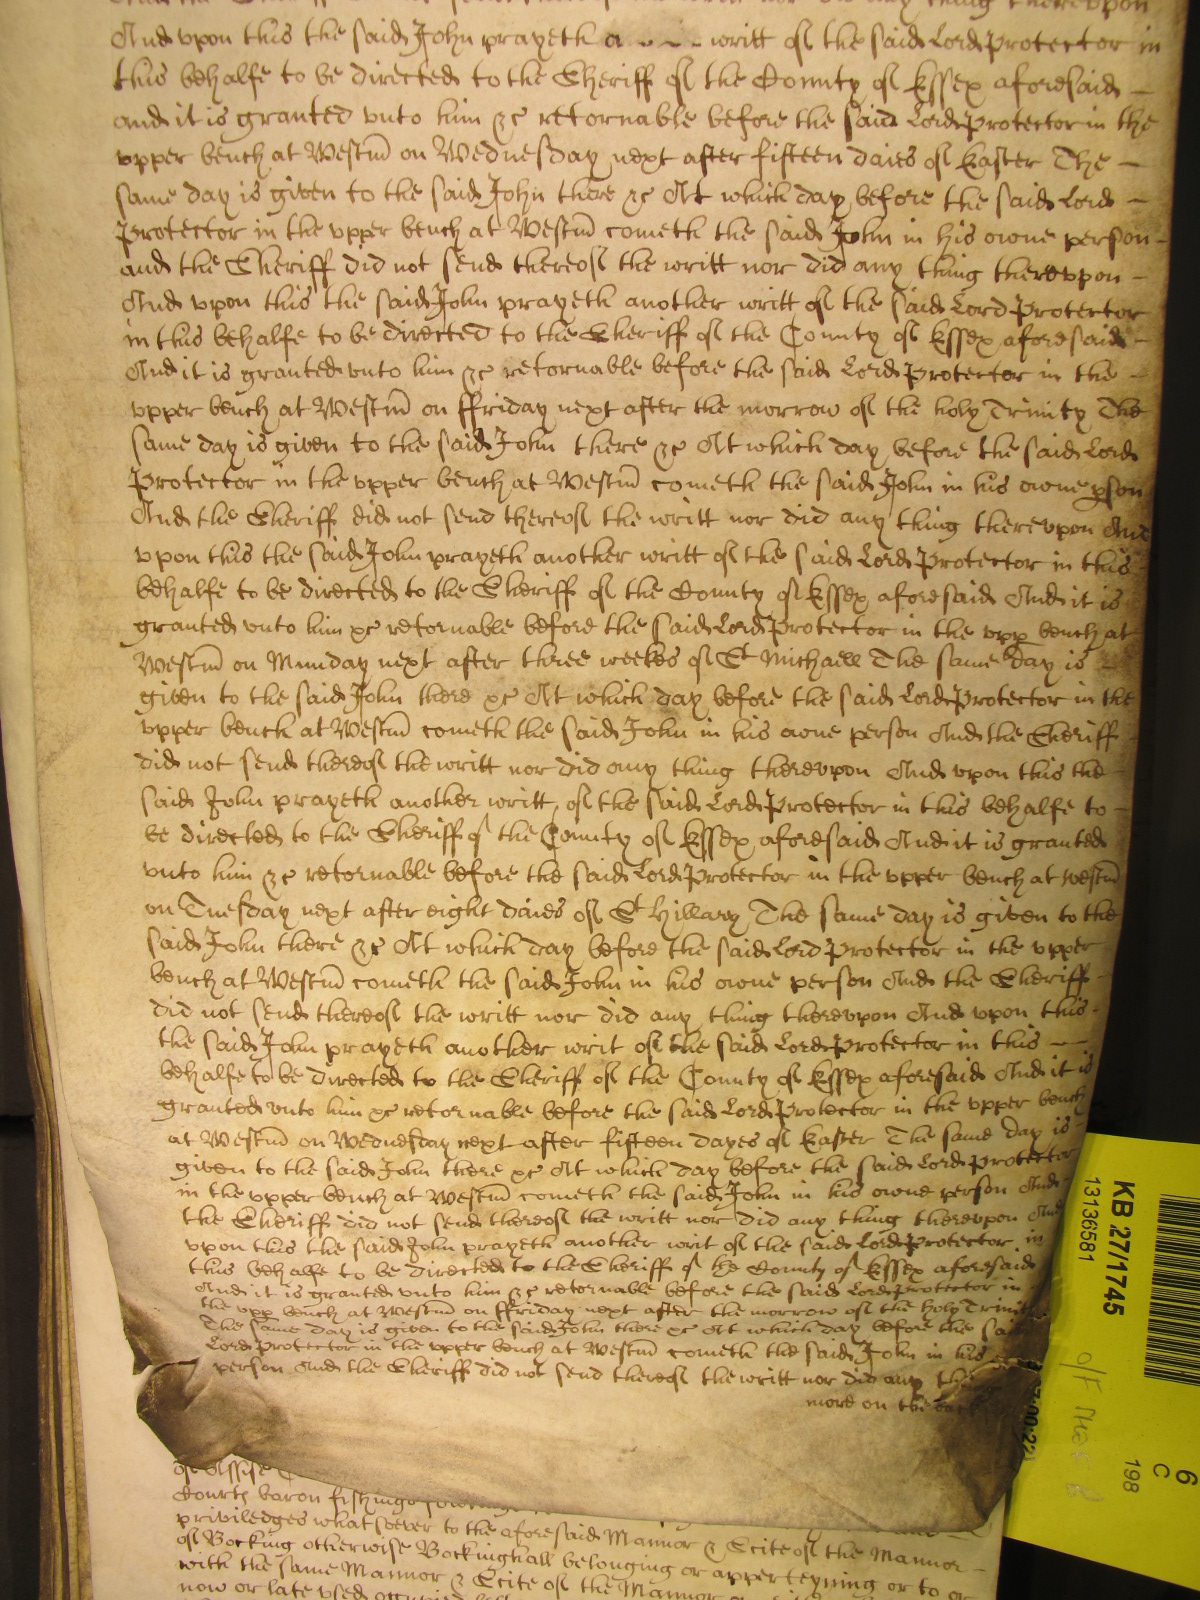 And upon this the said John prayeth a - - - writt of the said Lord Protector in
this behalfe to be directed to the Sheriff of the County of Essex aforesaid
and it is granted unto him &c retornable before the said Lord Protector in the
upper bench at Westm on Wednesday next after fifteen daies of Easter The
same day is given to the said John there &c At which day before the said Lord
Protector in the upper bench at Westm cometh the said John in his owne person
and the Sheriff did not send thereof the writt nor did any thing thereupon
And upon this the said John prayeth another writt of the said Lord Protector
in this behalfe to be directed to the Sheriff of the County of Essex aforesaid
And it is granted unto him &c retornable before the said Lord Protector in the
upper bench at Westm on ffriday next after the morrow of the holy Trinity The
same day is given to the said John there &c At which day before the said Lord
Protector in the upper bench at Westm cometh the said John in his owne pson
And the Sheriff did not send thereof the writt nor did any thing thereupon And
upon this the said John prayeth another writt of the said Lord Protector in this
behalfe to be directed to the Sheriff of the County of Essex aforesaid And it is
granted unto him &c retornable before the said Lord Protector in the upp bench at
Westm on Munday next after three weekes of St Michaell The same day is
given to the said John there &c At which day before the said Lord Protector in the
upper bench at Westm cometh the said John in his owne person And the Sheriff
did not send thereof the writt nor did any thing thereupon And upon this the
said John prayeth another writt of the said Lord Protector in this behalfe to
be directed to the Sheriff of the County of Essex aforesaid And it is granted
unto him &c retornable before the said Lord Protector in the upper bench at Westm
on Tuesday next after eight daies of St Hillary The same day is given to the
said John there &c At which day before the said Lord Protector in the upper
bench at Westm cometh the said John in his owne person And the Sheriff
did not send thereof the writt nor did any thing thereupon And upon this
the said John prayeth another writ of the said Lord Protector in this
behalfe to be directed to the Sheriff of the County of Essex aforesaid And it is
granted unto him &c retornable before the said Lord Protector in the upper bench
at Westm on Wednesday next after fifteen dayes of Easter The same day is
given to the said John there &c At which day before the said Lord Protector
in the upper bench at Westm cometh the said John in his owne person And
the Sheriff did not send thereof the writt nor did any thing thereupon And
upon this the said John prayeth another writ of the said Lord Protector in
this behalfe to be directed to the Sheriff of the County of Essex aforesaid
And it is granted unto him &c retornable before the said Lord Protector in
the upp bench at Westm on ffriday next after the morrow of the holy Trinit
The same day is given to the said John there &c At which day before the said
Lord Protector in the upper bench at Westm cometh the said John in his
person And the Sheriff did not send thereof the writt nor did any
more on the
of Assise
Courts baron fishings
priviledges what soever to the aforesaid Mannor & Scite of the Mannor
of Bocking otherwise Bockinghall belonging or apperteyning or to or
with the same Mannor & Scite of the Mannor
now or late used
KB 27/1745
13136581
6
C
198